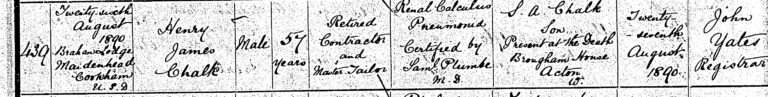 439
Twenty sixth
August
1890
Braham Lodge
Maidenhead
Cookham
U.S.D
Henry
James
Chalk
Male
57
years
Retired
Contractor
and
Master Tailor
Renal Calculus
Pneumonia
Certified by
Saml Plumbe
M.D.
S. A. Chalk
Son
Present at the Death
Brougham House
Acton
W.
Twenty
-seventh
August
1890.
John
Yates
Registrar